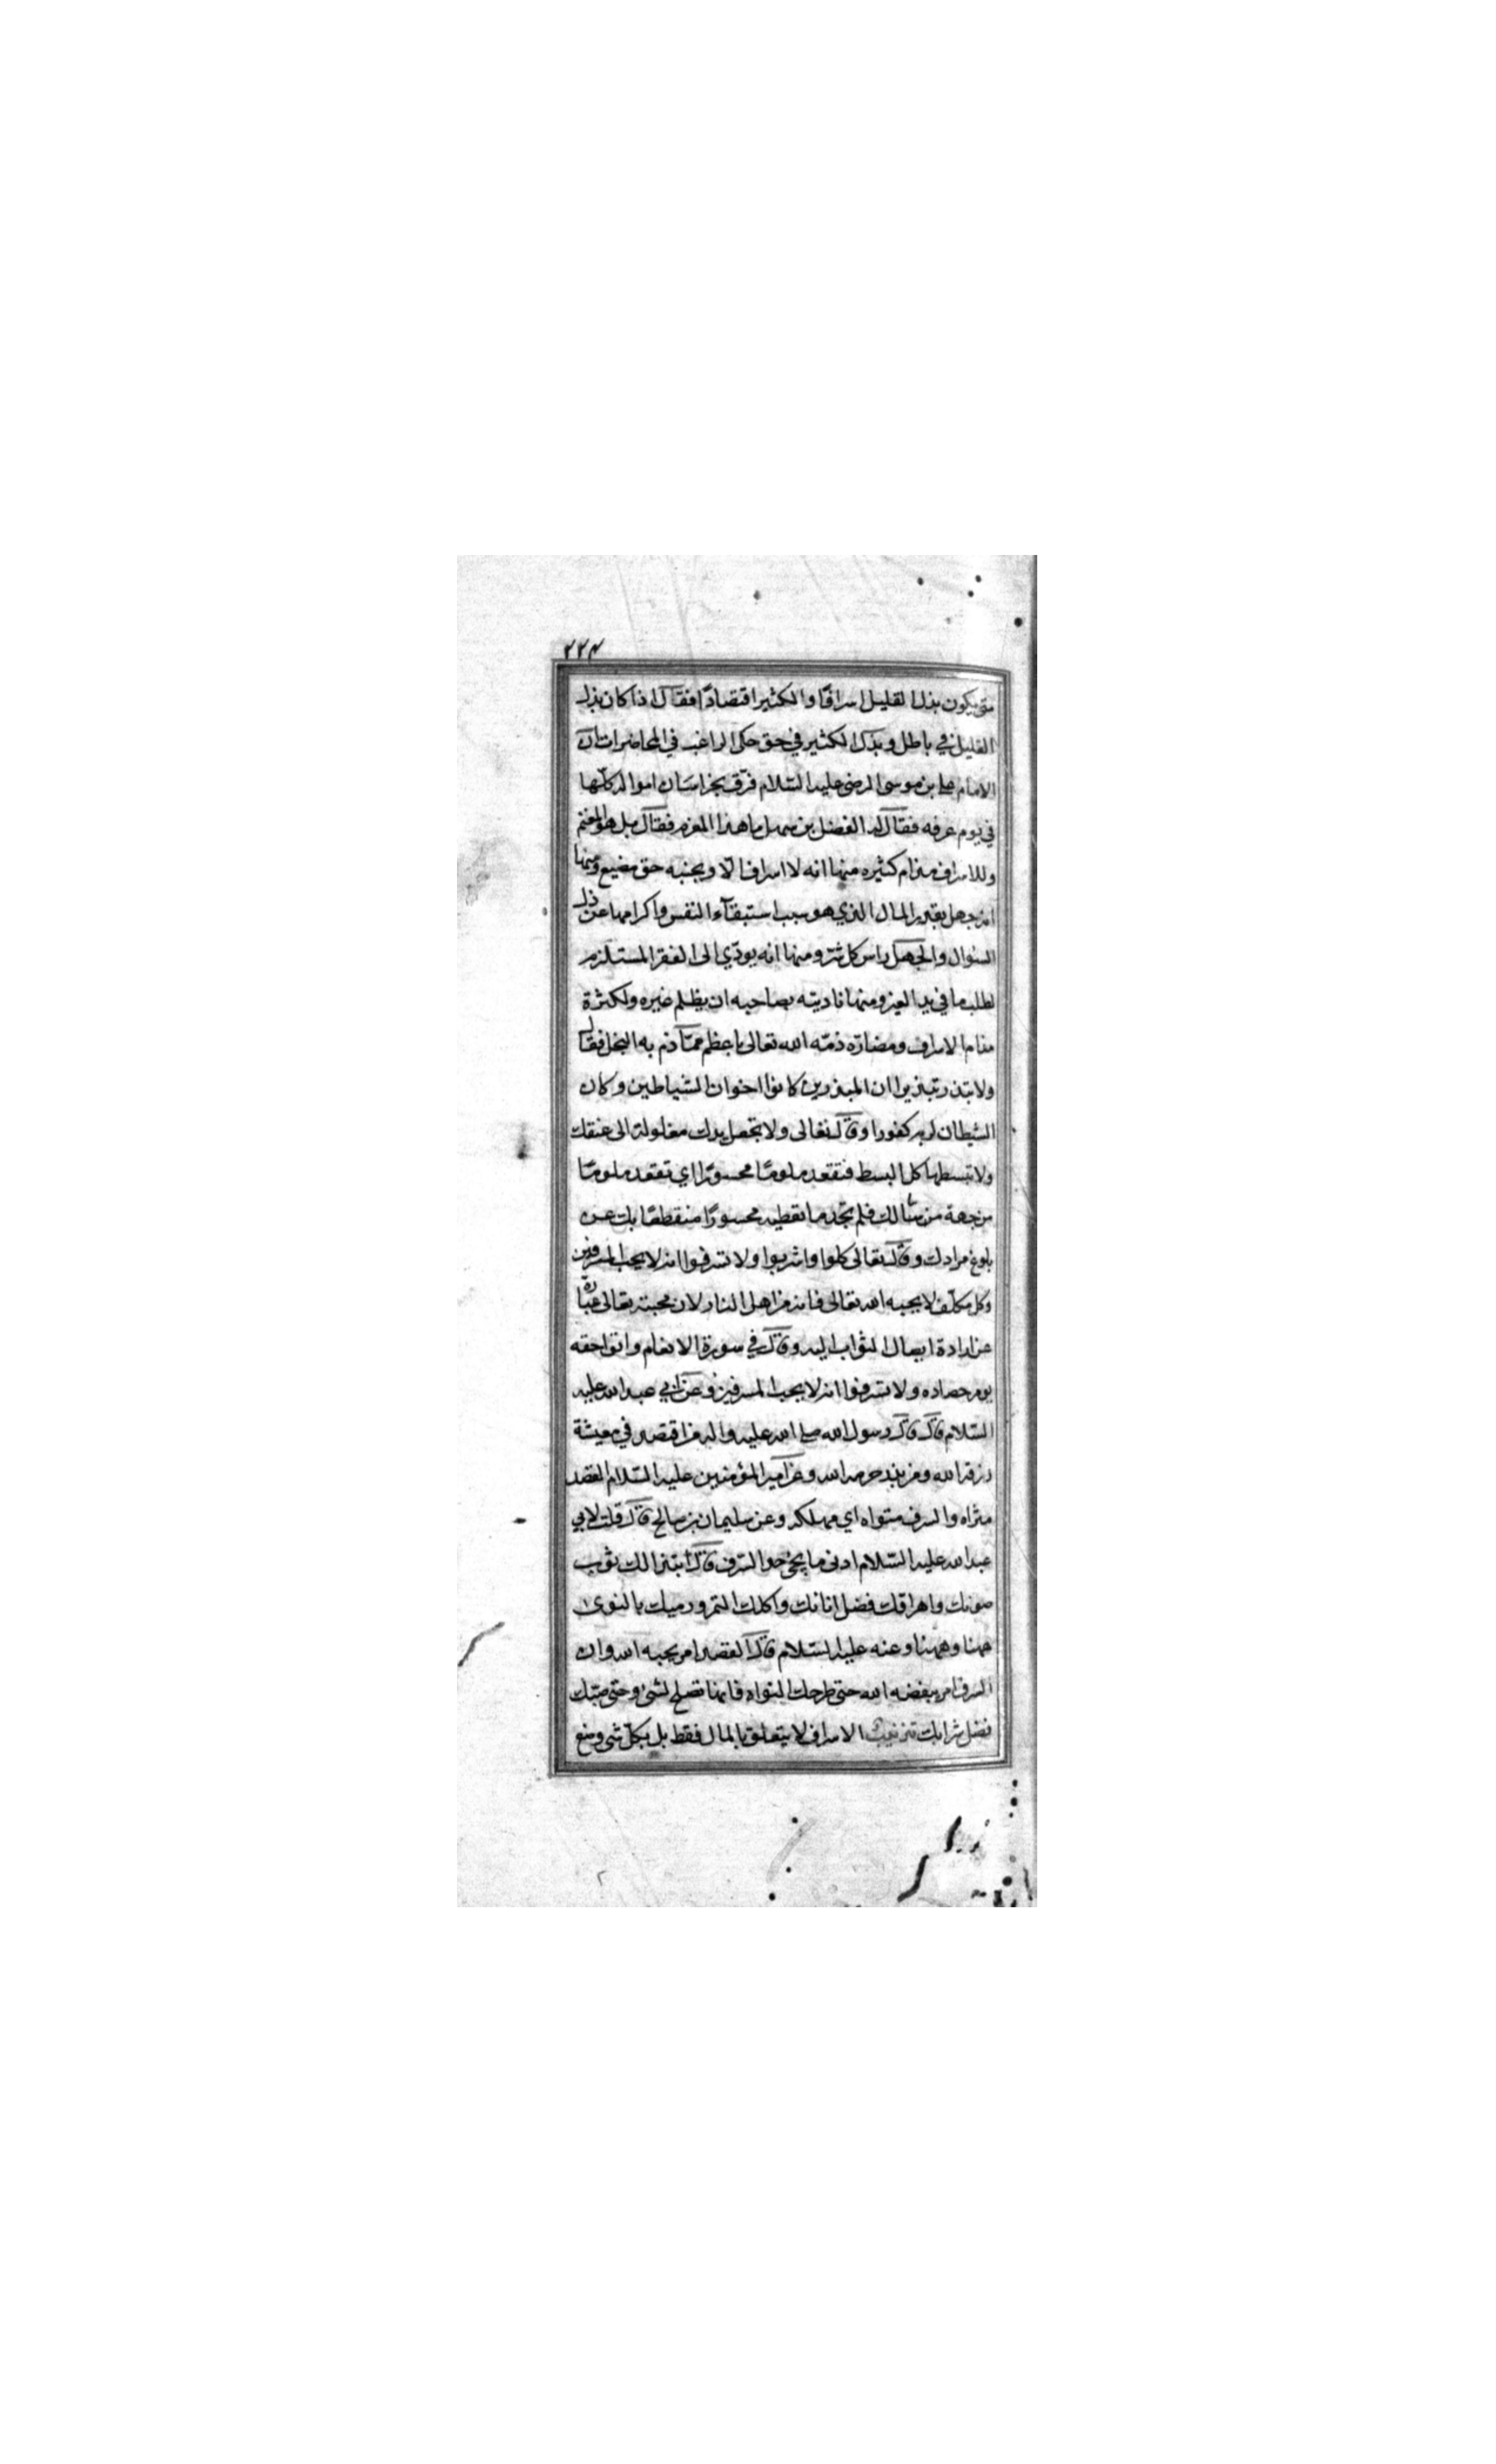 ٢٢٤
متى يكون بذل القليل اسرافًا والكثير اقتصادًا فقال اذا كان بذل
القليل في باطل وبذل الكثير في حق حكى الراغب في المحاضرات ان
الامام علي بن موسى الرضي عليه السّلام فرّق بخراسان امواله كلّها
في يوم عرفه فقال له الفضل بن سهل ما هذا المغرم فقال بل هو المغنم
وللاسراف مذام كثيره منها انه لا اسراف الّا وبجنبه حق مضيع ومنها
انه جهل بقدر المال الذي هو سبب استبقآء النفس واكرامها عن ذل
السئوال والجهل راس كل شر ومنها انه يودّي الى الفقر المستلزم
لطلب ما في يد الغير ومنها تاديته بصاحبه ان يظلم غيره ولكثرة
مذام الاسراف ومضارّه ذمّه الله تعالى باعظم ممّا ذم به البخل فقال
ولا تبذر تبذيرا ان المبذرين كانوا اخوان الشياطين وكان
الشيطان لربه كفورا وقال تعالى ولا تجعل يدك مغلولة الى عنقك
ولا تبسطها كل البسط فتقعد ملومًا محسورًا اي تقعد ملومًا
من جهة من سالك فلم تجد ما تعطيه محسورًا منقطعًا بك عن
بلوغ مرادك وقال تعالى كلوا واشربوا ولا تسرفوا انه لا يحب المسرفين
وكل مكلّف لا يحبه الله تعالى فانه من اهل النار لان محبته تعالى عبارة
عن ارادة ايصال الثواب اليه وقال في سورة الانعام واتوا حقه
يوم حصاده ولا تسرفوا انه لا يحب المسرفين وعن ابي عبد الله عليه
السّلام قال قال رسول الله صلى الله عليه واله من اقتصد في معيشة
رزقه الله ومن بذر حرمه الله وعن امير المؤمنين عليه السّلام القصد
مثراه والسرف متواه اي مهلكه وعن سليمان بن صالح قال قلت لابي
عبد الله عليه السّلام ادنى ما يجئ حد السّرف قال ابتذالك ثوب
صونك واهراقك فضل انائك واكلك التمر ورميك بالنوى
ههنا وههنا وعنه عليه السّلام قال القصد امر يحبه الله وان
السرف امر يبغضه الله حتى طرحك النواه فانها تصلح لشئ وحتى صبّك
فضل شرابك الاسراف لا يتعلق بالمال فقط بل بكلّ شي وضع